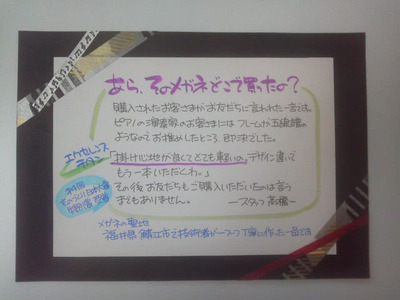 あら、そのメガネどこで買ったの？
購入されたお客さまがお友だちに言われた一言です。
ピアノの演奏家のお客さまには フレームが五線譜の
ようなのでお推めしたところ、即決でした。
エクセレンス
チタン
「掛け心地が良くてとても軽いの。デザイン違いで
もう一本いただくわ。」
その後 お友だちもご購入いただいたのは言う
までもありません。
ースタッフ 高橋ー
メガネの聖地
福井県 鯖江市で技術者が一つ一つ丁寧に作った一品です